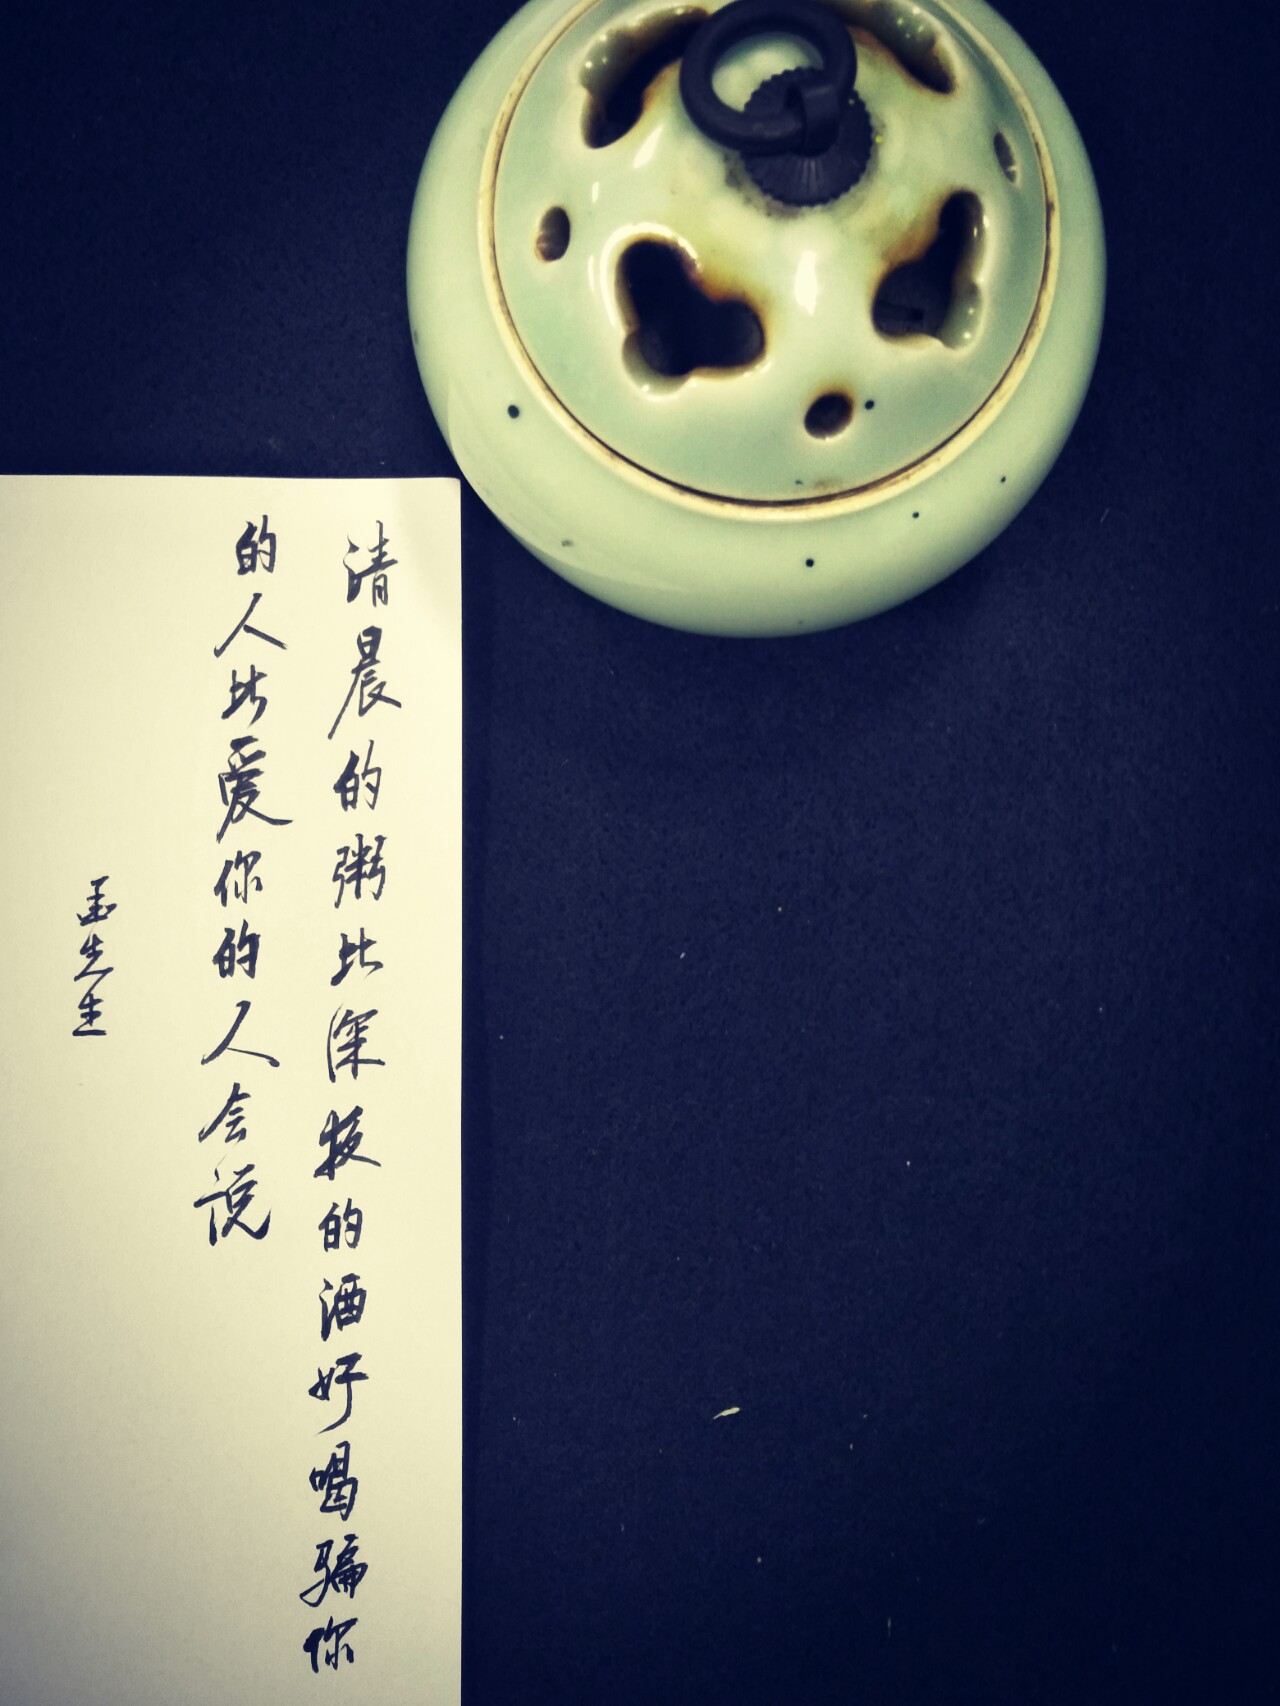 清晨的粥比深夜的酒好喝骗你
的人比爱你的人会说
先生